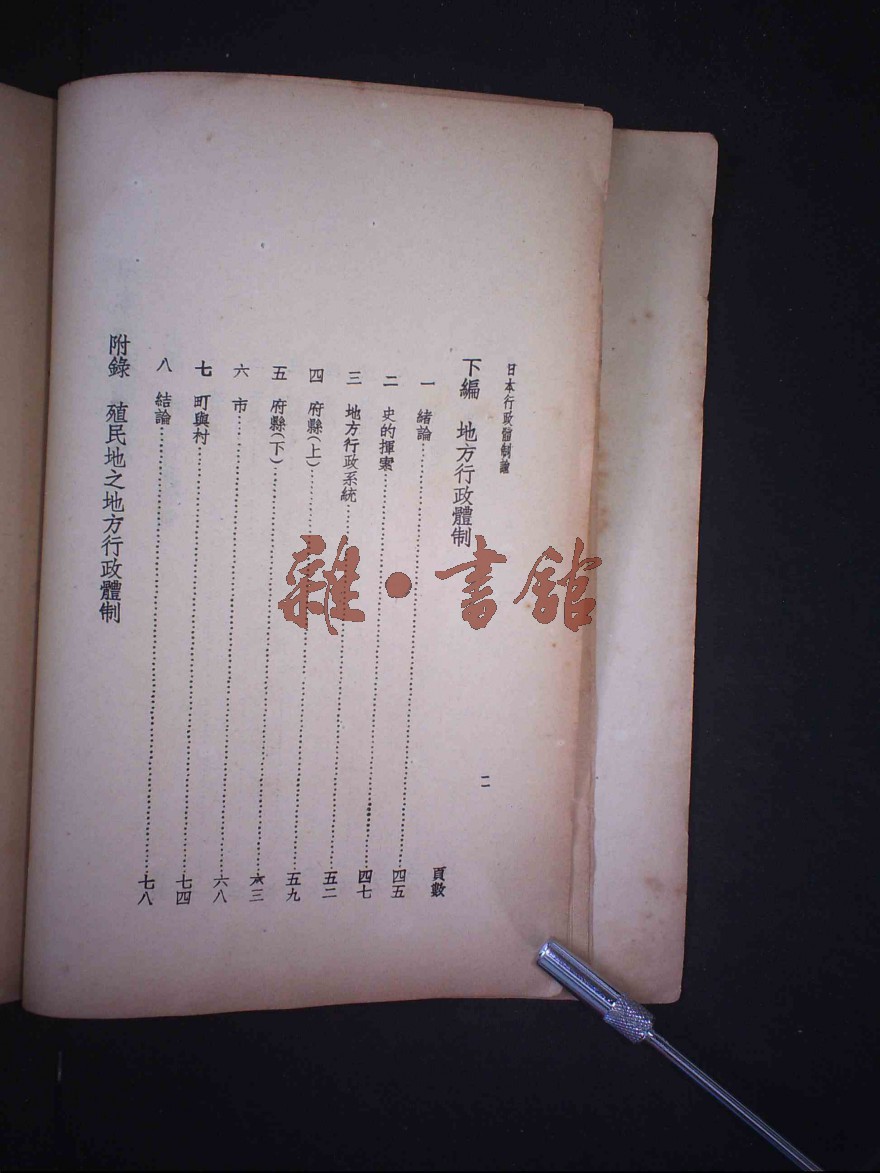 日本行政體制論
二
下編　地方行政體制
頁數
一　緒論……四五
二　史的揮索……四七
三　地方行政系統……五二
四　府縣(上)……五九
五　府縣(下)……六三
六　市……六八
七　町與村……七四
八　結論……七八
附錄　殖民地之地方行政體制
雜·書館